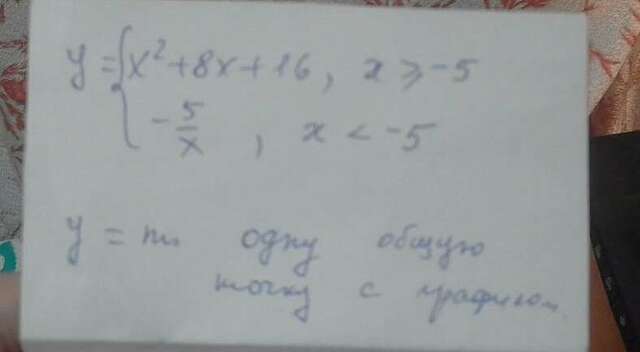 y = { x² + 8x + 16, x ⩾ -5
- 5/x , x < -5
y = m одну общую
точку с графиком